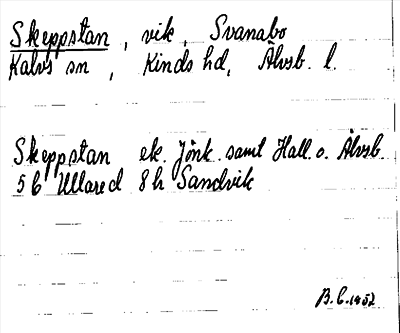 Skeppstan, vik, Svanabo
Kalvs sn, Kinds hd, Älvsb. l.
Skeppstan ek. Jönk. samt Hall. o. Älvsb.
56 Ullared 8h Sandvik
B.C. 1452